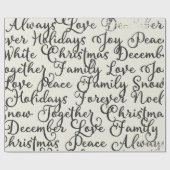 Always Love December
ever Holidays Joy Peace
White Christmas December
Together Family Love To
Love Peace Family Snow
Holidays Forever Noel
Snow Together Christma
December Love Family
Christmas Peace Always